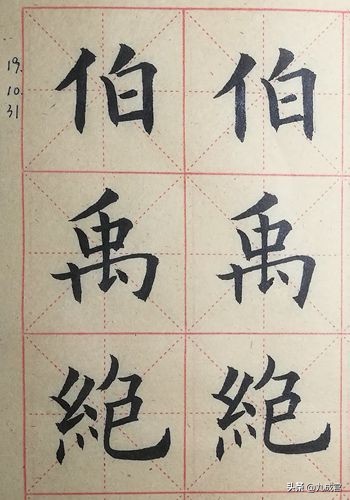 19.
10.
31
伯 伯
禹 禹
絕 絕
头条 @九成宫